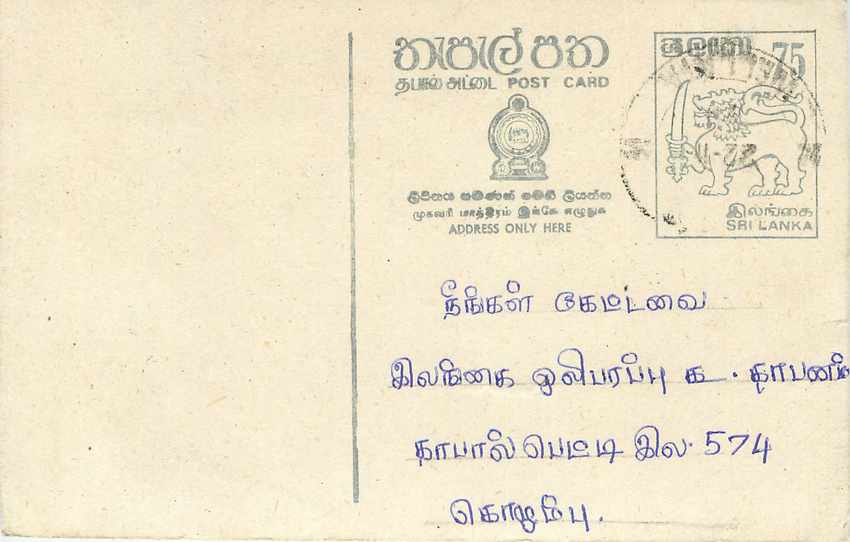 තැපැල් පත
தபால் அட்டை POST CARD
ලිපිනය පමණක් මෙහි ලියන්න
முகவரி மாத்திரம் இங்கே எழுதுக
ADDRESS ONLY HERE
ශ්‍රී ලංකා 75
இலங்கை
SRI LANKA
நீங்கள் கேட்டவை
இலங்கை ஒலிபரப்பு க. தாபனம்
தாபால் பெட்டி இல. 574
கொழும்பு.